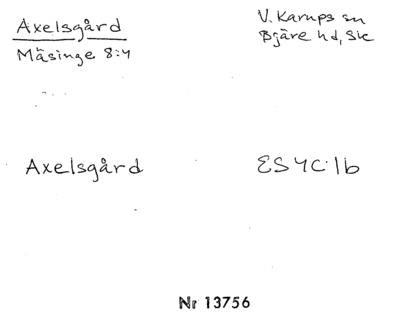 Axelsgård
Mäsinge 8:4
V. Karups sn
Bjäre hd, Sk
Axelsgård
ES4C:1b
Nr 13756